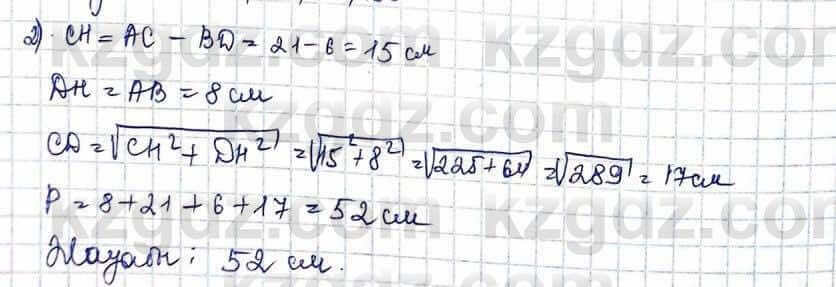 2) CH = AC − BD = 21 − 6 = 15 см
DH = AB = 8 см
CD = √(CH² + DH²) = √(15² + 8²) = √(225 + 64) = √289 = 17 см
P = 8 + 21 + 6 + 17 = 52 см
Жауабы: 52 см.